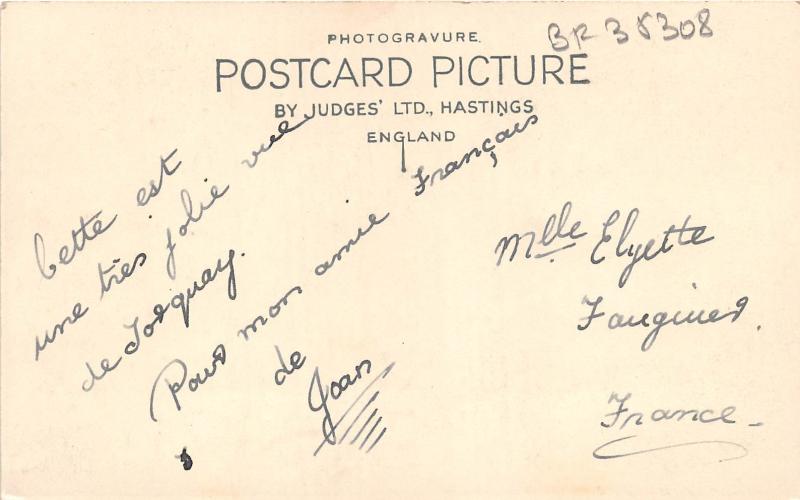 BR 38308
PHOTOGRAVURE.
POSTCARD PICTURE
BY JUDGES' LTD., HASTINGS
ENGLAND
Cette est
une très jolie vue
de Torquay.
Pour mon amie Français
de
Joan
Mlle Elyette
Fauginer.
France